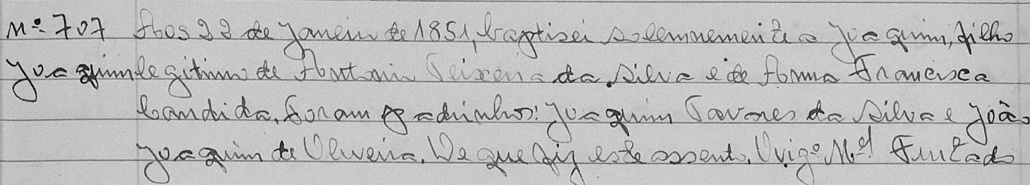 Nº 707 Aos 22 de Janeiro de 1851, baptizei solemnemente a Joaquim, filho
Joaquim legitimo de Antonio Teixeira da Silva e de Anna Francisca
Candida. Foram padrinhos: Joaquim Tavares da Silva e João
Joaquim de Oliveira. De que fiz este assento. O vigº Mel Furtado